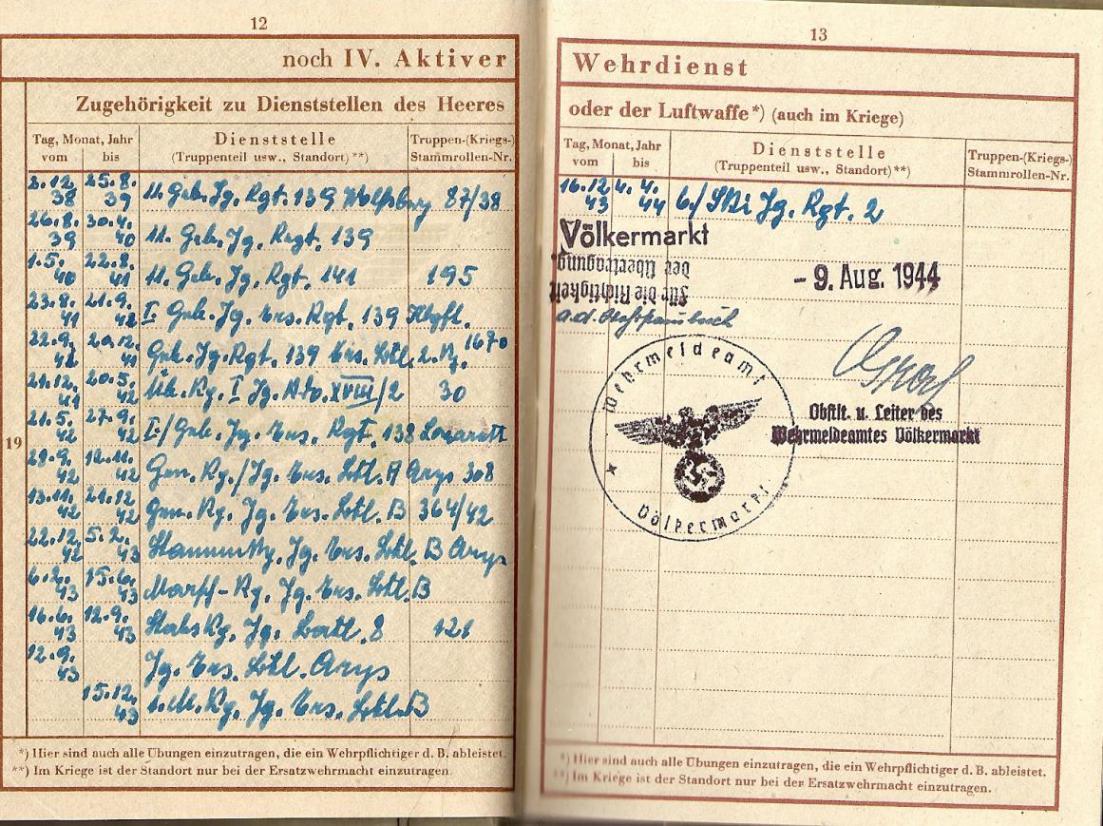 12
noch IV. Aktiver
Zugehörigkeit zu Dienststellen des Heeres
Tag, Monat, Jahr
vom bis
Dienststelle
(Truppenteil usw., Standort)**)
Truppen-(Kriegs-)
Stammrollen-Nr.
19
2.12. 38 25.8. 39 11. Geb. Jg. Rgt. 139 Wolfsberg 87/38
26.8. 39 30.4. 40 11. Geb. Jg. Regt. 139
1.5. 40 22.8. 41 11. Geb. Jg. Rgt. 141 195
23.8. 41 21.9. I. Geb. Jg. Ers. Rgt. 139
22.9. Geb. Jg. Rgt. 139 Ers. Btl. 1670
21.12. 41 20.5. 42 I Jg. XVIII/2 30
21.5. 42 27.9. 42 I./Geb. Jg. Ers. Rgt. 138 Lazarett
28.9. 42 12.11. 42 Gen. Kp./Jg. Ers. Btl. A Arys 308
13.11. 42 21.12. 42 Gen. Kp. Jg. Ers. Btl. B 364/42
22.12. 42 5.2. 43 Jg. Ers. Btl. B Arys
6.2. 43 15.6. 43 Marsch-Kp. Jg. Ers. Btl. B
16.6. 43 12.9. 43 Stabskp. Jg. Batl. 8 121
12.9. 43 Jg. Ers. Btl. Arys
15.12. 43 Kp. Jg. Ers. Btl. B
*) Hier sind auch alle Übungen einzutragen, die ein Wehrpflichtiger d. B. ableistet.
**) Im Kriege ist der Standort nur bei der Ersatzwehrmacht einzutragen.
13
Wehrdienst
oder der Luftwaffe*) (auch im Kriege)
Tag, Monat, Jahr
vom bis
Dienststelle
(Truppenteil usw., Standort)**)
Truppen-(Kriegs-)
Stammrollen-Nr.
16.12. 43 4.4. 44 6./Ski Jg. Rgt. 2
Völkermarkt
Für die Richtigkeit
der Übertragung.
- 9. Aug. 1944
Wehrmeldeamt
Völkermarkt
Obstlt. u. Leiter des
Wehrmeldeamtes Völkermarkt
*) Hier sind auch alle Übungen einzutragen, die ein Wehrpflichtiger d. B. ableistet.
**) Im Kriege ist der Standort nur bei der Ersatzwehrmacht einzutragen.